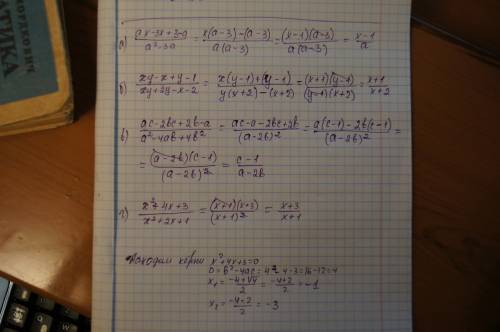 МАТЕМАТИКА
а) (ax-3x+3-a)/(a²-3a) = (x(a-3)-(a-3))/(a(a-3)) = ((x-1)(a-3))/(a(a-3)) = (x-1)/a
б) (xy-x+y-1)/(xy+2y-x-2) = (x(y-1)+(y-1))/(y(x+2)-(x+2)) = ((x+1)(y-1))/((y-1)(x+2)) = (x+1)/(x+2)
в) (ac-2bc+2b-a)/(a²-4ab+4b²) = (ac-a-2bc+2b)/((a-2b)²) = (a(c-1)-2b(c-1))/((a-2b)²) =
= ((a-2b)(c-1))/((a-2b)²) = (c-1)/(a-2b)
г) (x²+4x+3)/(x²+2x+1) = ((x+1)(x+3))/((x+1)²) = (x+3)/(x+1)
Находим корни x²+4x+3=0
D=b²-4ac=4²-4·3=16-12=4
x₁ = (-4+√4)/2 = (-4+2)/2 = -1
x₂ = (-4-2)/2 = -3